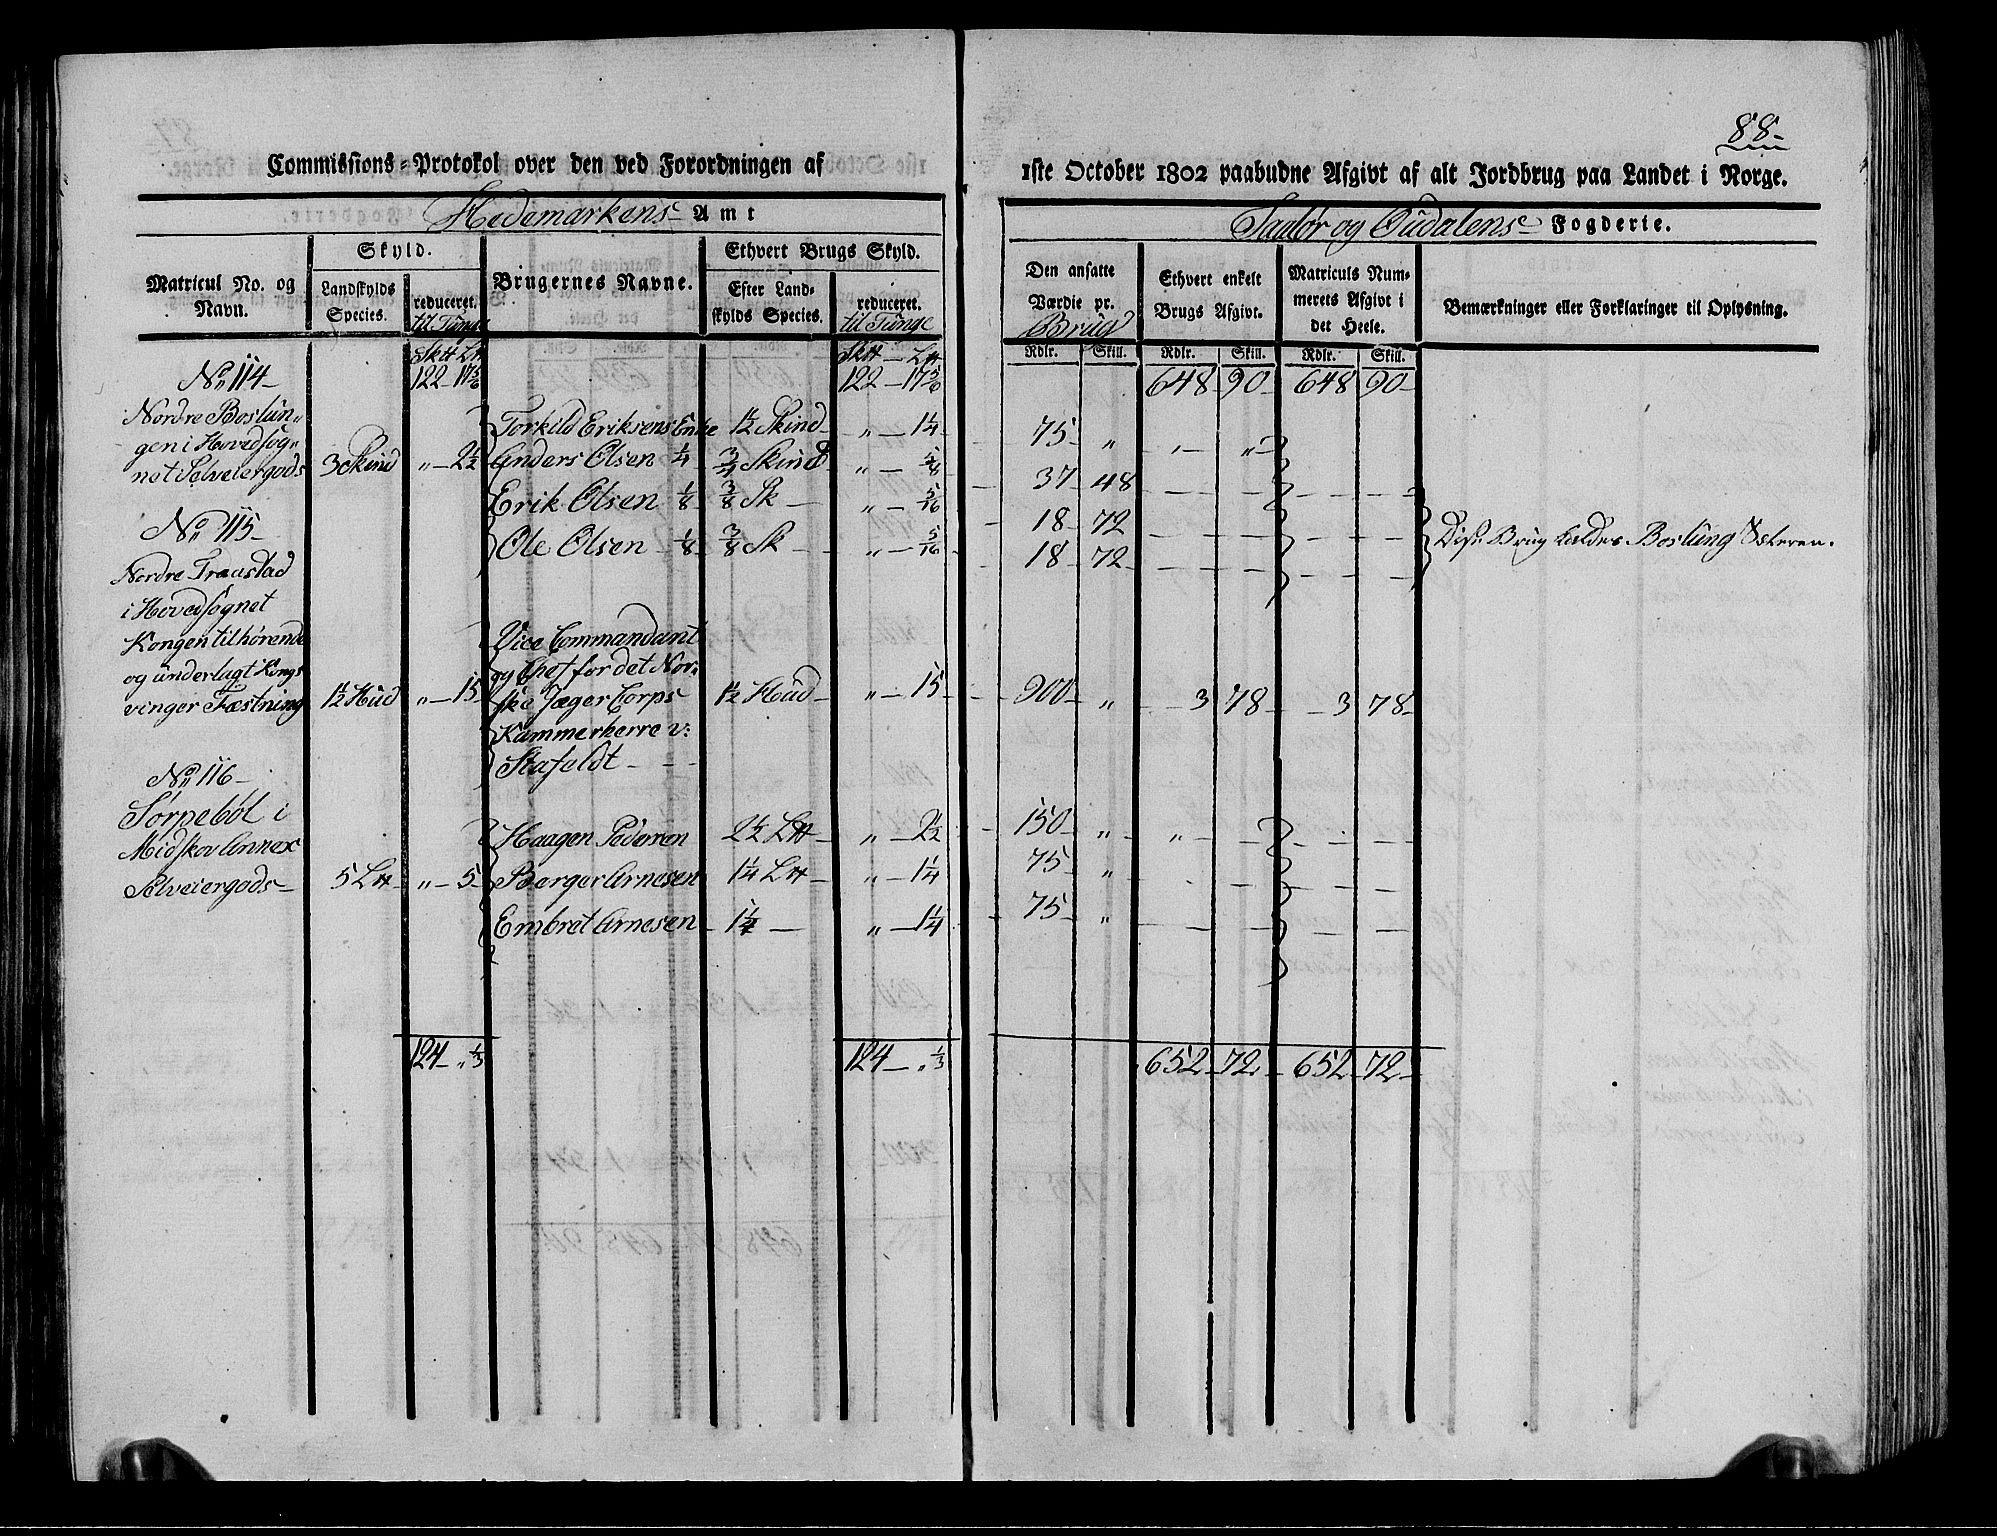 88-
Commissions-Protokol over den ved Forordningen af
1ste October 1802 paabudne Afgivt af alt Jordbrug paa Landet i Norge.
Hedemarkens Amt
og Oudalens Fogderie.
Matricul No. og Navn.
Skyld.
Landskylds Species.
reduceret.
til Tunge
Brugernes Navne.
Ethvert Brugs Skyld.
Efter Landskylds Species.
reduceret.
til Tunge
Den ansatte Værdie pr.
Brug
Ethvert enkelt Brugs Afgivt.
Matriculs Nummerets Afgivt i det Heele.
Bemærkninger eller Forklaringer til Oplysning.
Rdlr. Skill. Rdlr. Skill. Rdlr. Skill.
122-17 5/6 122-17 5/6 648-90- 648-90-
No 114-
Nordre Boslun-
gen i Hovedsog-
net Selveiergods 3 Skind „-2½
Torkild Eriksens Enke 1½ Skind „-1¼ 75- „
Anders Olsen ¼ ¾ Skind „-5/8 37-48
Erik Olsen 1/8 3/8 Sk- „-5/16 18-72
Ole Olsen 1/8 3/8 Sk- „-5/16 18-72
Disse Brug kaldes Boslung Østeren.
No 115-
Nordre Fraustad
i Hovedsognet
Kongen tilhørende
og underlagt Kongs
vinger Fæstning 1½ Hud „-15
Vice Commandant
og Chef for det Nor-
ske Jæger Corps
Kammerherre v:
Stafeldt - - -
1½ Houd- „-15- 900- „ 3 78- 3 78-
No 116-
Sørpeböl i
Midskov Annex
Selveiergods- 5 L₶ „-5-
Haagen Pedersen 2½ L₶- „-2½ 150- „
Berger Arnesen 1¼ L₶- „-1¼ 75- „
Embret Arnesen 1¼- „-1¼ 75- „
124-„ 1/3 124-„ 1/3 652-72- 652-72-